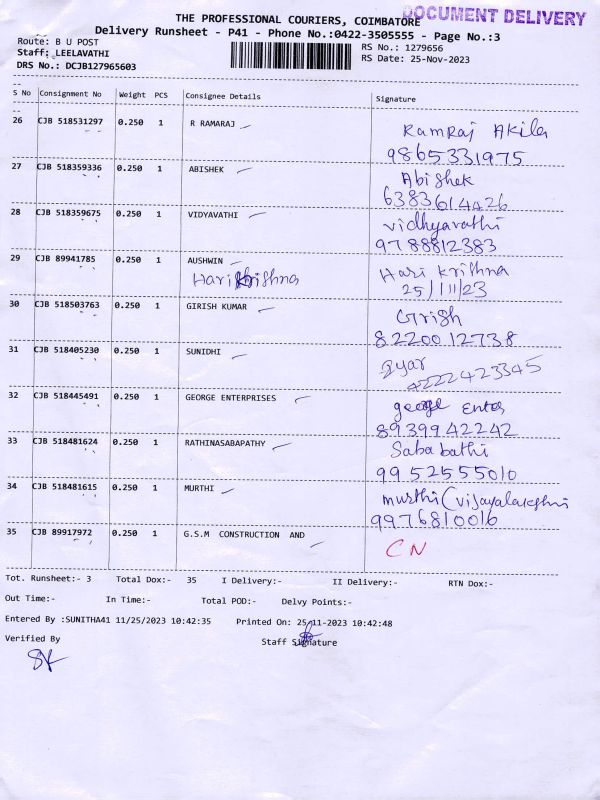 THE PROFESSIONAL COURIERS, COIMBATORE
DOCUMENT DELIVERY
Delivery Runsheet - P41 - Phone No.:0422-3505555 - Page No.:3
Route: B U POST
RS No.: 1279656
Staff: LEELAVATHI
RS Date: 25-Nov-2023
DRS No.: DCJB127965603
S No Consignment No Weight PCS Consignee Details Signature
26 CJB 518531297 0.250 1 R RAMARAJ Ramraj Akila
9865331975
27 CJB 518359336 0.250 1 ABISHEK Abishek
6383614426
28 CJB 518359675 0.250 1 VIDYAVATHI Vidhyavathi
9788812383
29 CJB 89941785 0.250 1 AUSHWIN Hari Krithna
Hari Krishna 25/11/23
30 CJB 518503763 0.250 1 GIRISH KUMAR Girish
82200 12738
31 CJB 518405230 0.250 1 SUNIDHI
4222423345
32 CJB 518445491 0.250 1 GEORGE ENTERPRISES george Enter
8939942242
33 CJB 518481624 0.250 1 RATHINASABAPATHY Sababathi
9952555010
34 CJB 518481615 0.250 1 MURTHI murthi (Vijayalakshmi
9976810016
35 CJB 89917972 0.250 1 G.S.M CONSTRUCTION AND CN
Tot. Runsheet:- 3 Total Dox:- 35 I Delivery:- II Delivery:- RTN Dox:-
Out Time:- In Time:- Total POD:- Delvy Points:-
Entered By :SUNITHA41 11/25/2023 10:42:35 Printed On: 25-11-2023 10:42:48
Verified By Staff Signature